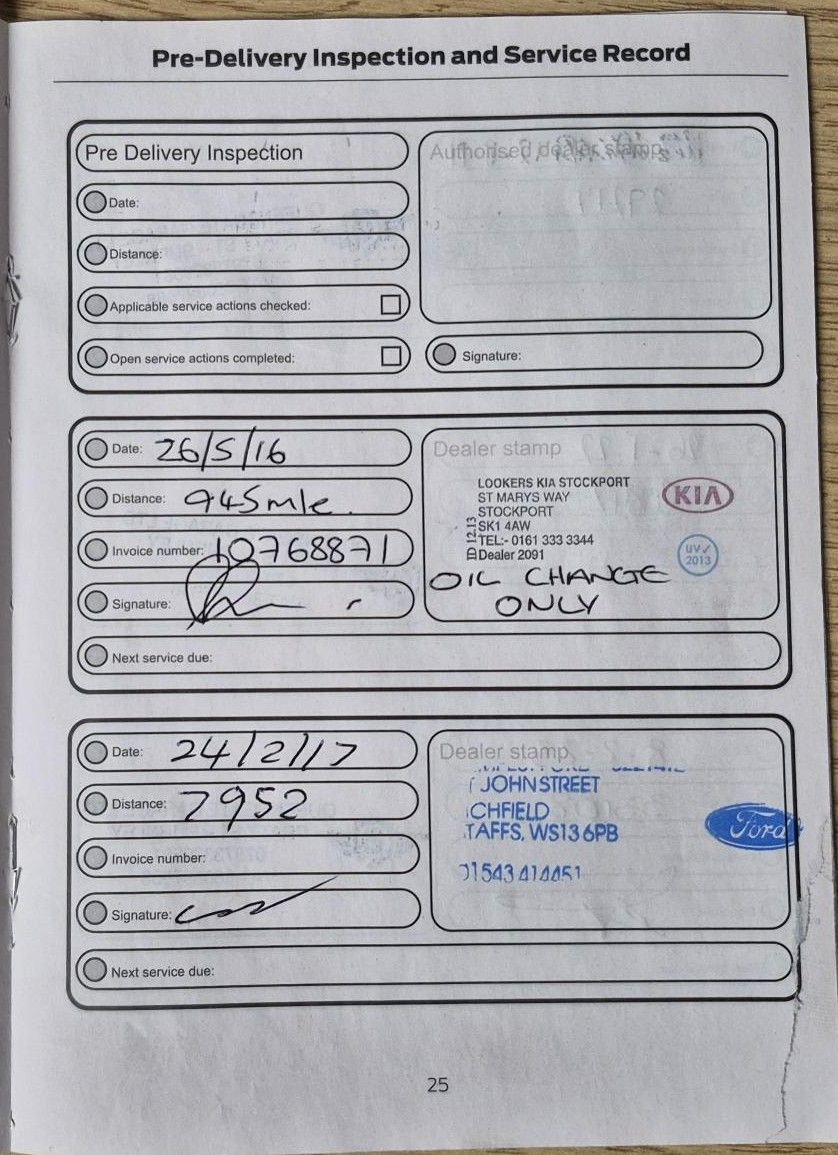 Pre-Delivery Inspection and Service Record
Pre Delivery Inspection
Authorised dealer stamp
Date:
Distance:
Applicable service actions checked:
Open service actions completed:
Signature:
Date: 26/5/16
Dealer stamp
LOOKERS KIA STOCKPORT
ST MARYS WAY
STOCKPORT
SK1 4AW
TEL:- 0161 333 3344
Dealer 2091
12.13
KIA
UV✓
2013
OIL CHANGE
ONLY
Distance: 945 mle.
Invoice number: 10768871
Signature:
Next service due:
Date: 24/2/17
Dealer stamp
JOHN STREET
CHFIELD
TAFFS, WS13 6PB
01543 414451
Ford
Distance: 7952
Invoice number:
Signature:
Next service due:
25